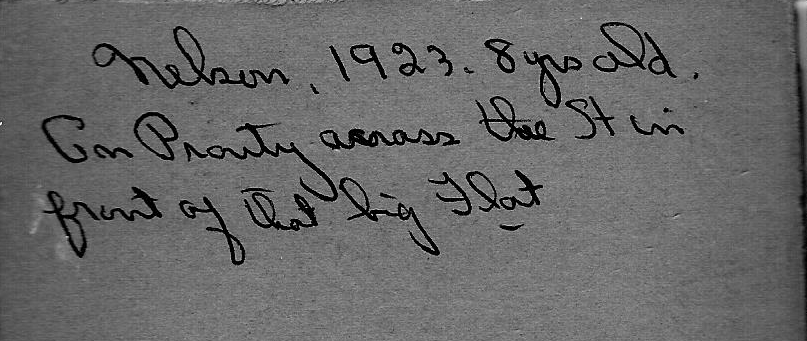 Nelson, 1923. 8 yrs old.
On Prouty across the St in
front of that big Flat